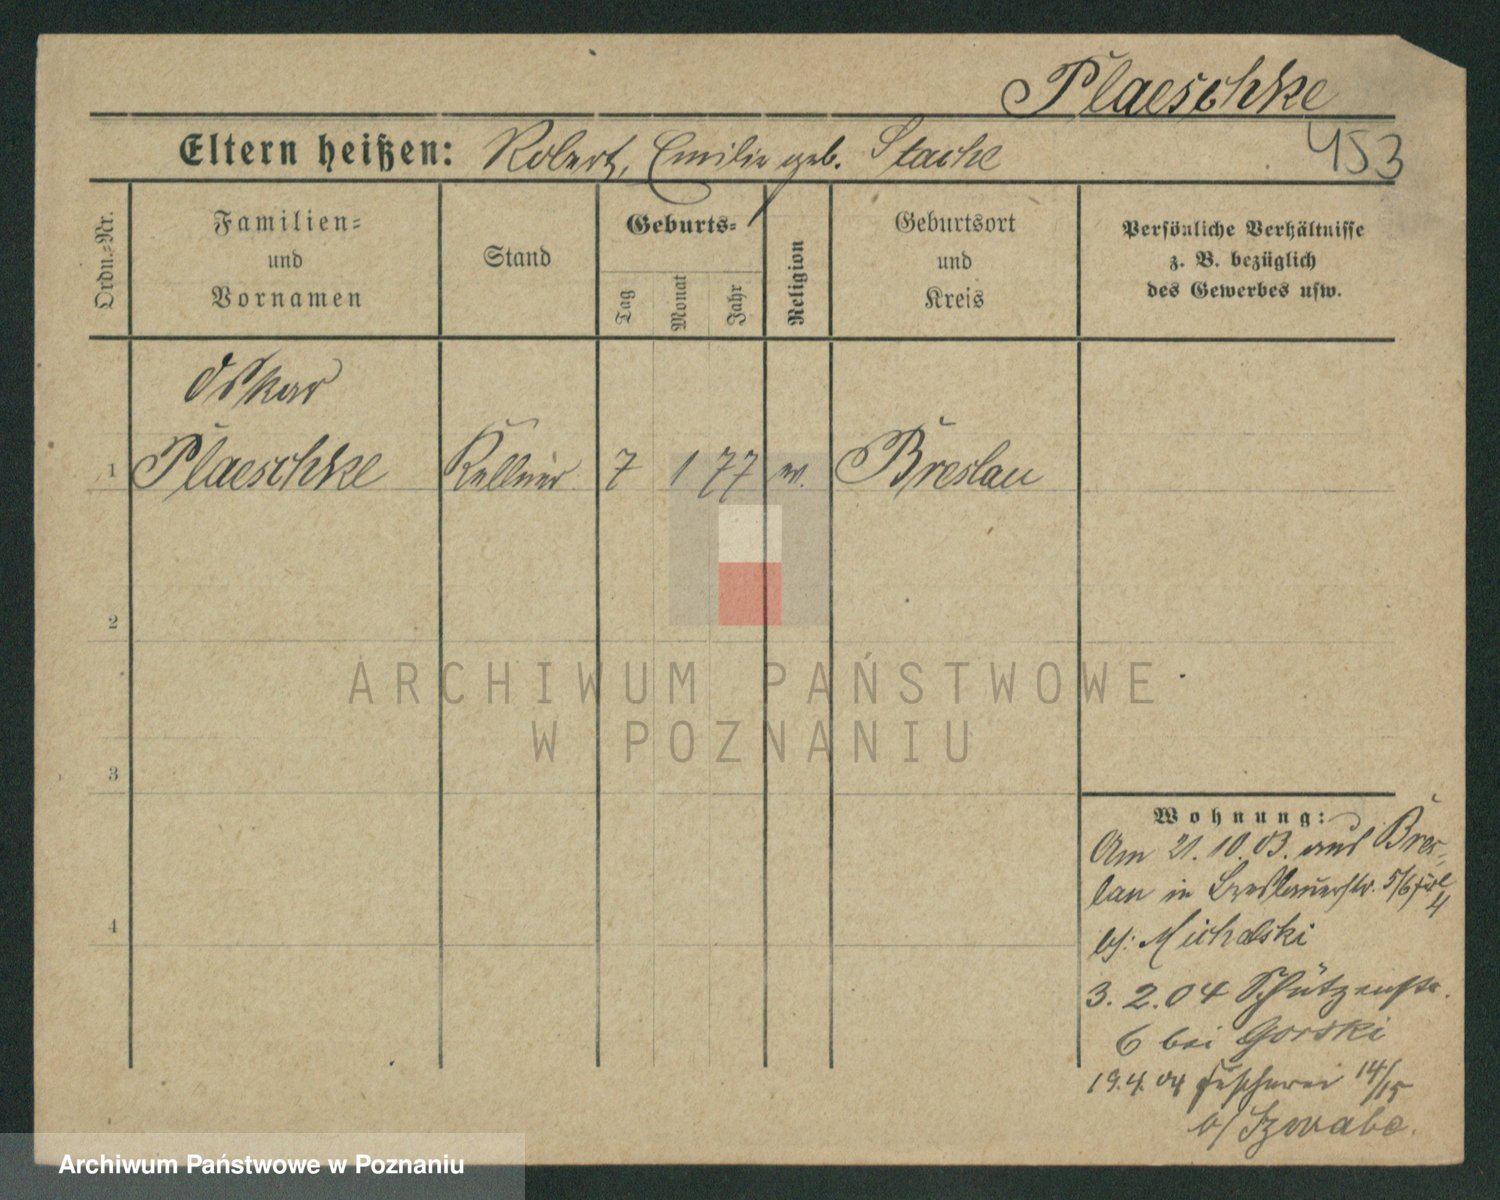 Plaeschke
453
Eltern heißen: Robert, Emilie geb. Stache
Ordn.-Nr.
Familien-
und
Vornamen
Stand
Geburts-
Tag
Monat
Jahr
Religion
Geburtsort
und
Kreis
Persönliche Verhältnisse
z. B. bezüglich
des Gewerbes usw.
Oskar
1 Plaeschke Kellner 7 1 77 ev. Breslau
2
3
4
ARCHIWUM PAŃSTWOWE
W POZNANIU
Wohnung:
Am 21.10.03. aus Bres-
lau in Breslauerstr. 5/6
b/: Michalski
3. 2. 04 Schützenstr.
6 bei Gorski
19.4.04 Fischerei 14/15
b/ Szwabe.
Archiwum Państwowe w Poznaniu